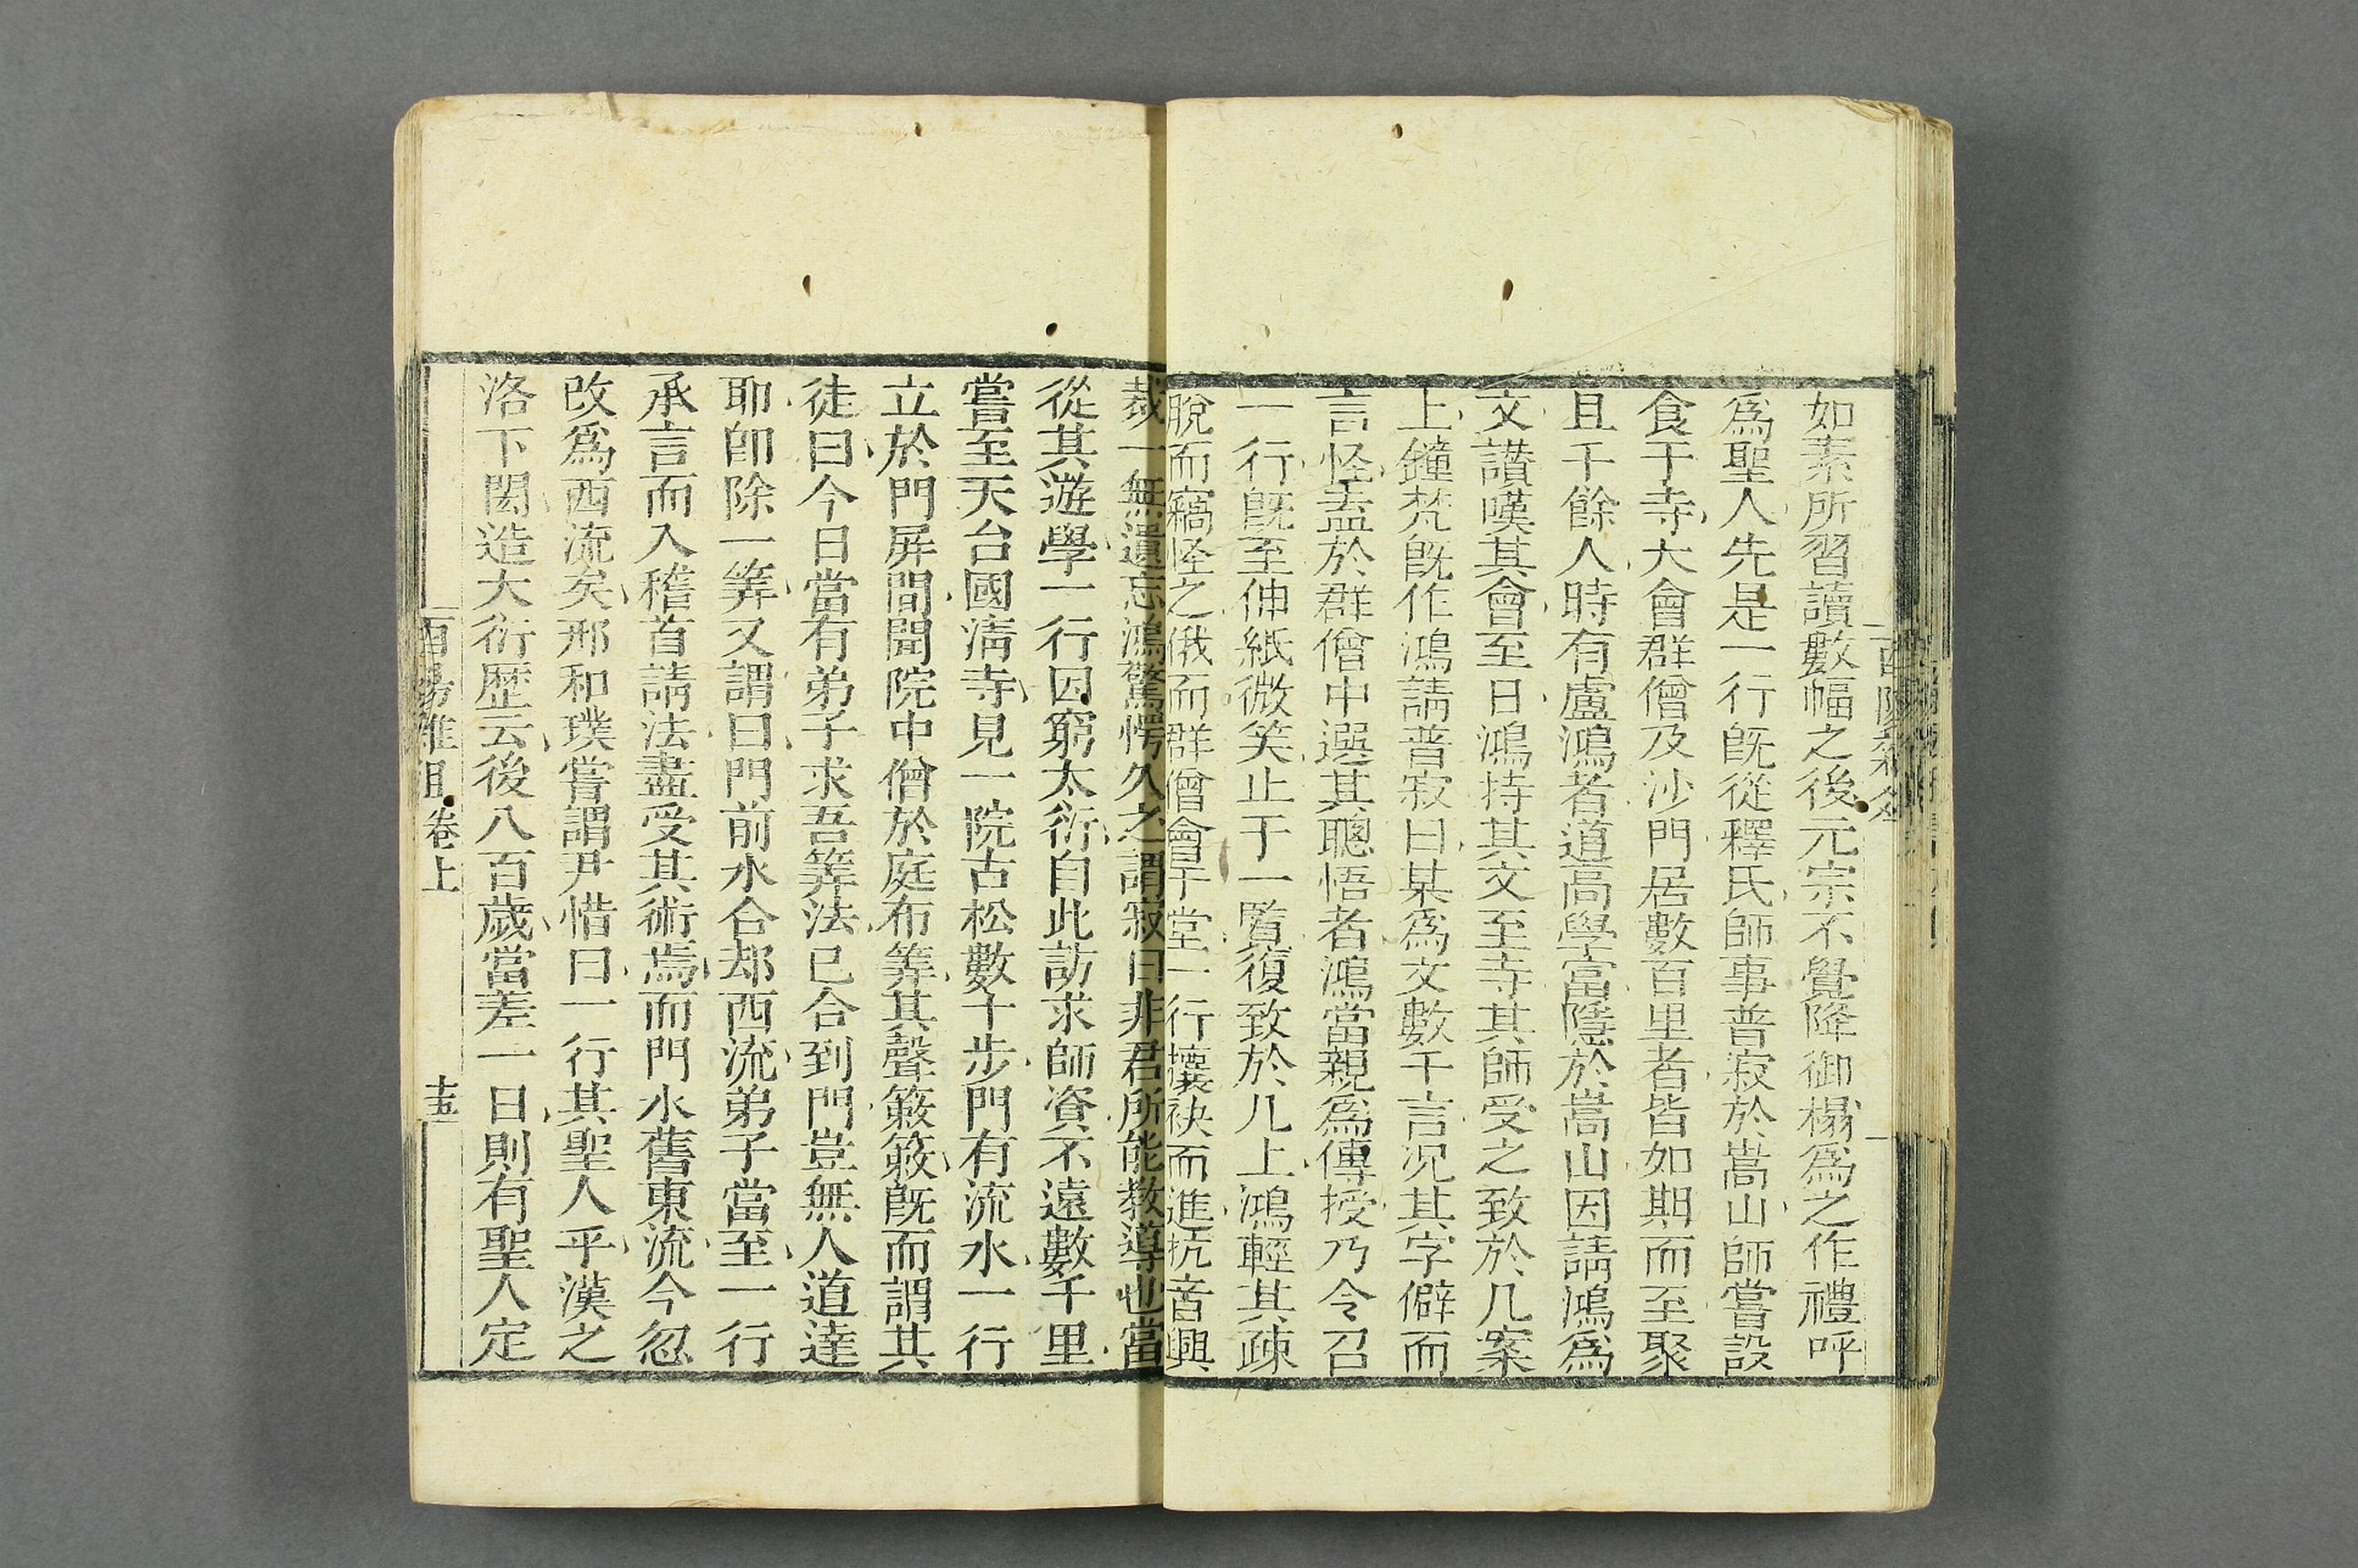 如素所習讀數幅之後元宗不覺降御榻爲之作禮呼
爲聖人先是一行旣從釋氏師事普寂於嵩山師嘗設
食于寺大會群僧及沙門居數百里者皆如期而至聚
且千餘人時有盧鴻者道高學富隱於嵩山因請鴻爲
文讃嘆其會至日鴻持其文至寺其師受之致於几案
上鐘梵旣作鴻請普寂曰某爲文數千言况其字僻而
言怪盍於群僧中選其聰悟者鴻當親爲傳授乃令召
一行旣至伸紙微笑止于一覧復致於几上鴻輕其疎
脫而竊怪之俄而群僧會于堂一行攘袂而進抗音興
裁一無遺忘鴻驚愕久之謂寂曰非君所能教導也當
從其遊學一行因窮太衍自此訪求師資不遠數千里
嘗至天台國淸寺見一院古松數十步門有流水一行
立於門屏間聞院中僧於庭布筭其聲簌簌旣而謂其
徒曰今日當有弟子求吾筭法已合到門豈無人道達
耶卽除一筭又謂曰門前水合却西流弟子當至一行
承言而入稽首請法盡受其術焉而門水舊東流今忽
改爲西流矣邢和璞嘗謂尹惜曰一行其聖人乎漢之
洛下閎造大衍歴云後八百歲當差一日則有聖人定
酉陽雜俎 卷上 十五